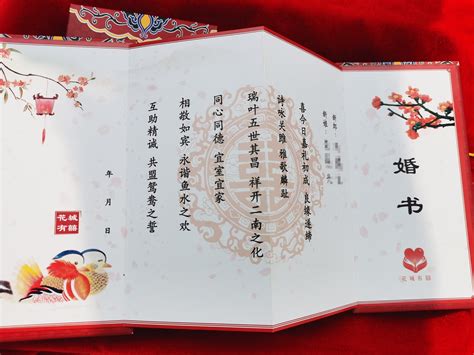 婚书
花城有囍
新郎
新娘
喜今日嘉礼初成 良缘遂缔
诗咏关雎 雅歌麟趾
瑞叶五世其昌 祥开二南之化
同心同德 宜室宜家
相敬如宾 永谐鱼水之欢
互助精诚 共盟鸳鸯之誓
年 月 日
花城
有囍